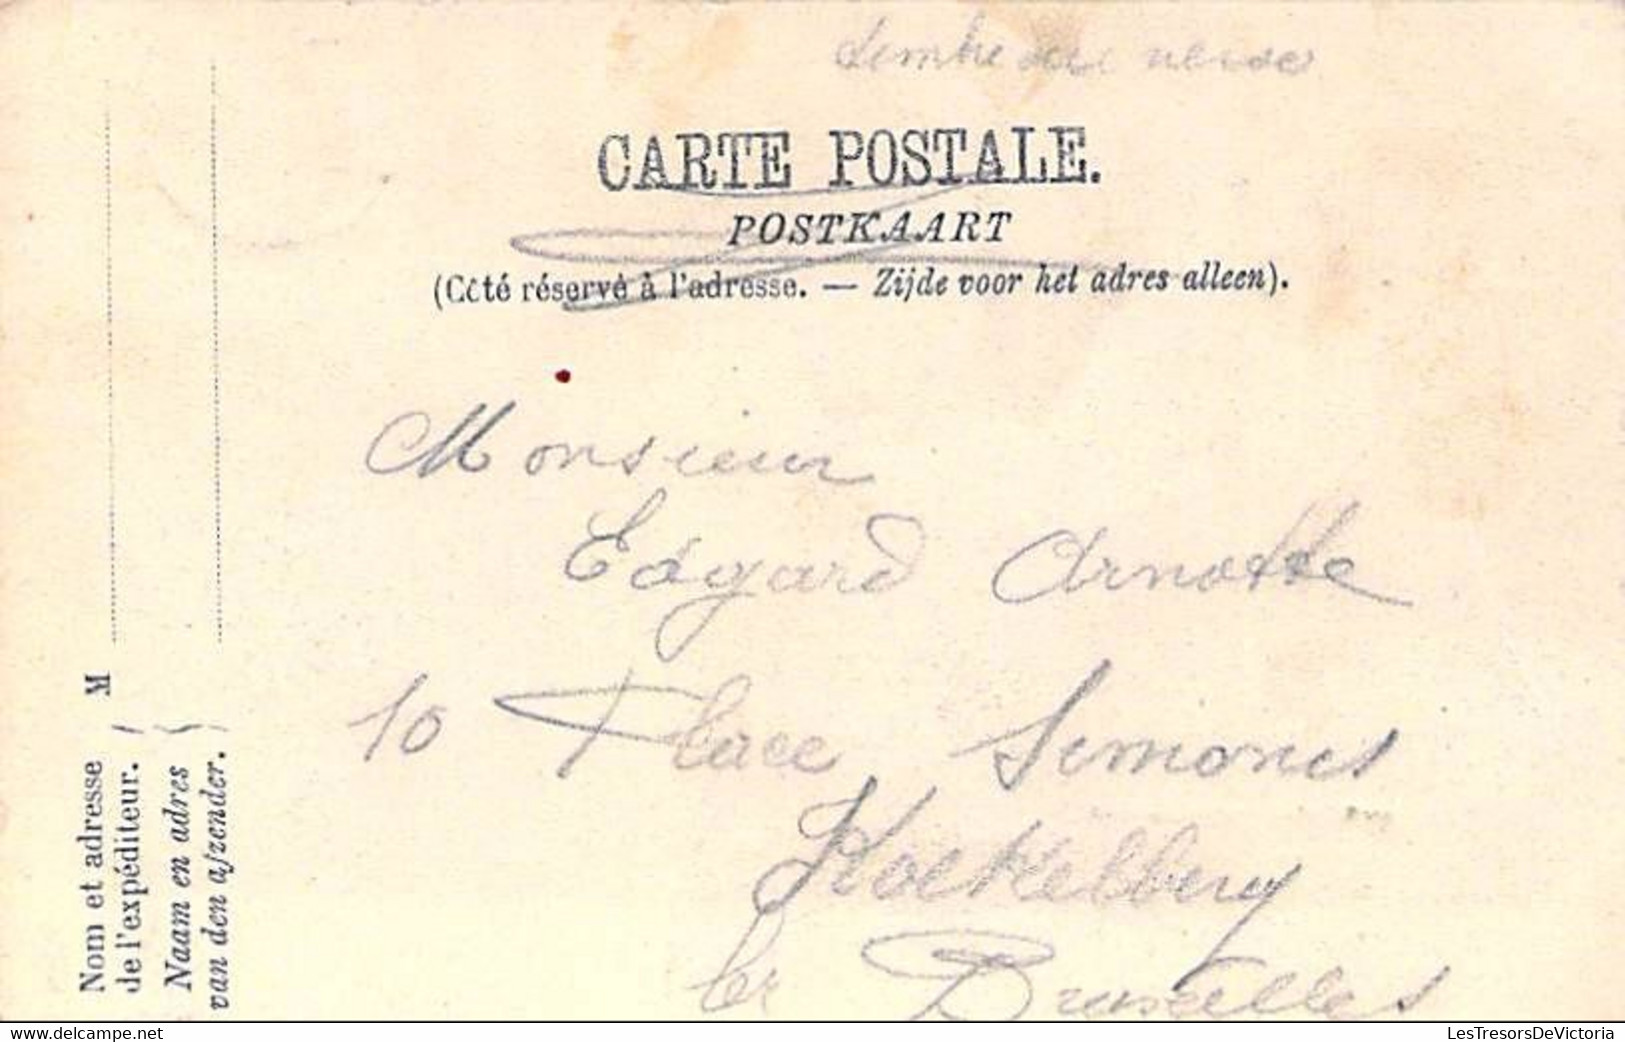 CARTE POSTALE.
POSTKAART
(Côté réservé à l'adresse. — Zijde voor het adres alleen).
Monsieur
Edgard Arnotte
10 Place Simonis
Koekelberg
lez Bruxelles
M
Nom et adresse
de l'expéditeur.
Naam en adres
van den afzender.
www.delcampe.net
LesTresorsDeVictoria